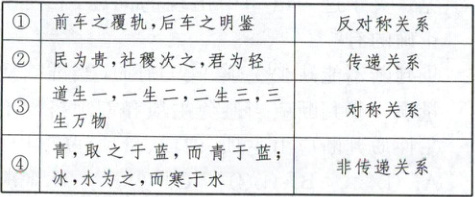 ① 前车之覆轨,后车之明鉴 反对称关系
② 民为贵,社稷次之,君为轻 传递关系
③ 道生一,一生二,二生三,三
生万物 对称关系
④ 青,取之于蓝,而青于蓝;
冰,水为之,而寒于水 非传递关系